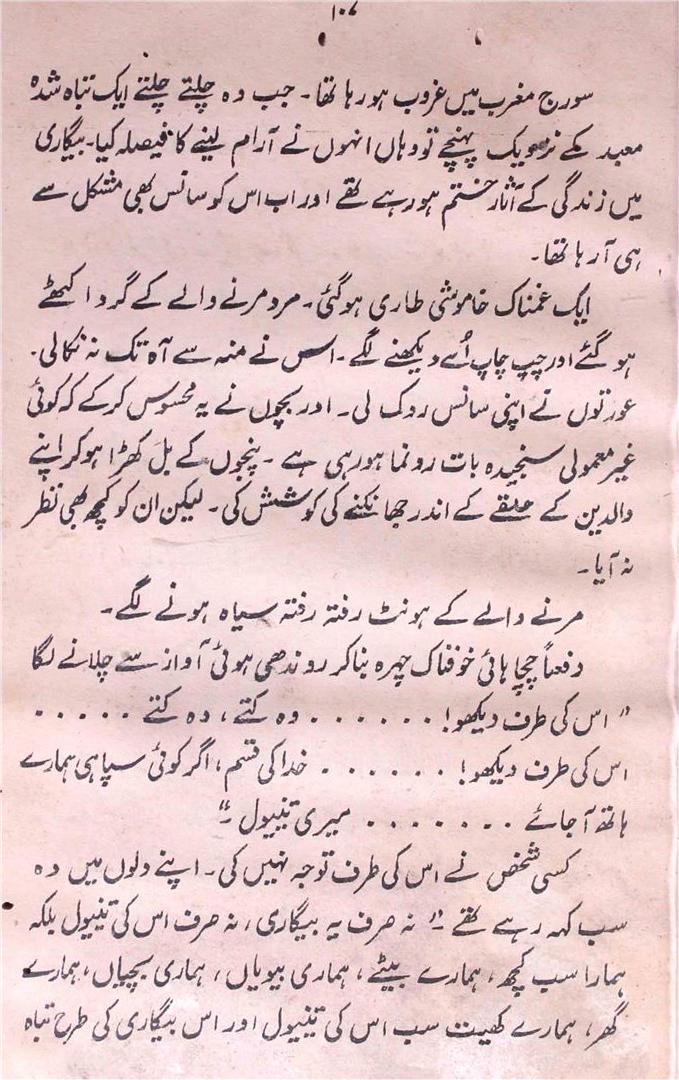 ۱۰۷
سورج مغرب میں غروب ہو رہا تھا۔ جب وہ چلتے چلتے ایک تباہ شدہ
معبد کے نزدیک پہنچے تو وہاں انہوں نے آرام لینے کا فیصلہ کیا۔ بیگاری
میں زندگی کے آثار ختم ہو رہے تھے اور اب اس کو سانس بھی مشکل سے
ہی آ رہا تھا۔
ایک غمناک خاموشی طاری ہو گئی۔ مرد مرنے والے کے گرد اکٹھے
ہو گئے اور چپ چاپ اُسے دیکھنے لگے۔ اس نے منہ سے آہ تک نہ نکالی۔
عورتوں نے اپنی سانس روک لی۔ اور بچوں نے یہ محسوس کر کے کہ کوئی
غیر معمولی سنجیدہ بات رونما ہو رہی ہے۔ پنجوں کے بل کھڑا ہو کر اپنے
والدین کے حلقے کے اندر جھانکنے کی کوشش کی۔ لیکن ان کو کچھ بھی نظر
نہ آیا۔
مرنے والے کے ہونٹ رفتہ رفتہ سیاہ ہونے لگے۔
دفعتاً چچا ہائی خوفناک چہرہ بنا کر روندھی ہوئی آواز سے چلانے لگا
"اس کی طرف دیکھو! . . . . . . وہ کتے، وہ کتے . . . . .
اس کی طرف دیکھو! . . . . . . خدا کی قسم، اگر کوئی سپاہی ہمارے
ہاتھ آ جائے . . . . . . . میری تینیول۔"
کسی شخص نے اس کی طرف توجہ نہیں کی۔ اپنے دلوں میں وہ
سب کہہ رہے تھے۔" نہ صرف یہ بیگاری، نہ صرف اس کی تینیول بلکہ
ہمارا سب کچھ، ہمارے بیٹے، ہماری بیویاں، ہماری بچیاں، ہمارے
گھر، ہمارے کھیت سب اس کی تینیول اور اس بیگاری کی طرح تباہ